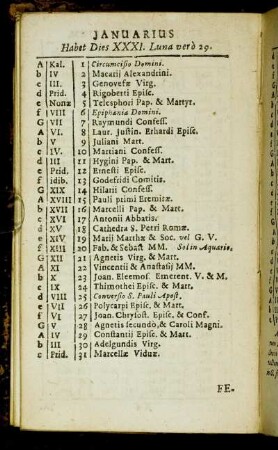 JANUARIUS
Habet Dies XXXI. Luna verò 29.
A Kal. 1 Circumcisio Domini.
b IV 2 Macarii Alexandrini.
c III. 3 Genovefæ Virg.
d Prid. 4 Rigoberti Episc.
e Nonæ 5 Telesphori Pap. & Martyr.
f VIII 6 Epiphania Domini.
G VII 7 Raymundi Confess.
A VI. 8 Laur. Justin. Erhardi Episc.
b V 9 Juliani Mart.
c IV. 10 Martiani Confess.
d III 11 Hygini Pap. & Mart.
e Prid. 12 Ernesti Episc.
f idib. 13 Godefridi Comitis.
G XIX 14 Hilarii Confess.
A XVIII 15 Pauli primi Eremitæ.
b XVII 16 Marcelli Pap. & Mart.
c XVI 17 Antonii Abbatis.
d XV 18 Cathedra S. Petri Romæ.
e XIV 19 Marii Marthæ & Soc. vel G. V.
f XIII 20 Fab. & Sebast MM. Sol in Aquario.
G XII 21 Agnetis Virg. & Mart.
A XI 22 Vincentii & Anastasij MM.
b X 23 Joan. Eleemos. Emerent. V. & M.
c IX 24 Thimothei Episc. & Mart.
d VIII 25 Conversio S. Pauli Apost.
e VII 26 Polycarpi Episc. & Mart.
f VI 27 Joan. Chrysost. Episc. & Conf.
G V 28 Agnetis secundò, & Caroli Magni.
A IV 29 Constantii Episc. & Mart.
b III 30 Adelgundis Virg.
c Prid. 31 Marcellæ Viduæ.
FE-